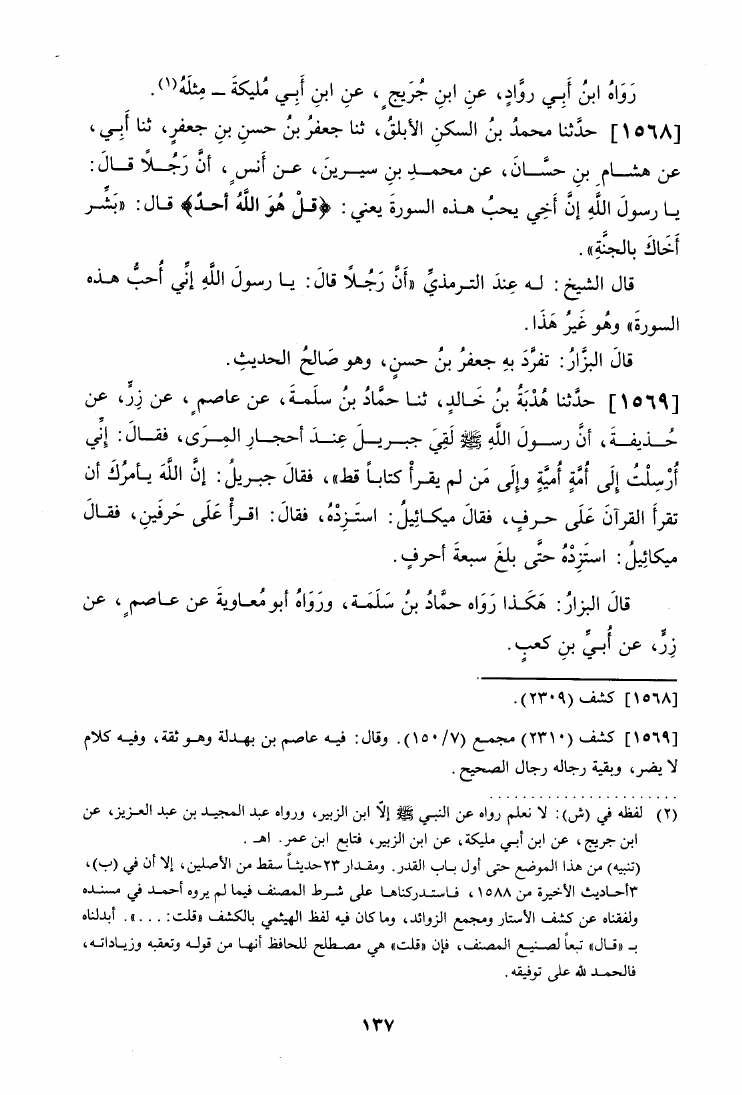 رَوَاهُ ابنُ أَبِي روَّادٍ، عنِ ابنِ جُرَيجٍ، عنِ ابنِ أَبِي مُليكةَ ــ مِثلَهُ(١).
[١٥٦٨] حدَّثنا محمدُ بنُ السكنِ الأبلقُ، ثنا جعفرُ بنُ حسنِ بنِ جعفرٍ، ثنا أَبي،
عن هشامِ بنِ حسَّانَ، عن محمدِ بنِ سيرينَ، عن أنسٍ، أنَّ رَجُلًا قالَ:
يا رسولَ اللَّهِ إنَّ أَخِي يحبُّ هذه السورةَ يعني: ﴿قلْ هُوَ اللَّهُ أحدٌ﴾ قال: «بَشِّر
أَخَاكَ بالجنَّةِ».
قال الشيخ: له عِندَ الترمذيِّ «أنَّ رَجُلًا قالَ: يا رسولَ اللَّهِ إنِّي أُحبُّ هذه
السورةَ» وهُو غَيرُ هَذَا.
قالَ البزَّارُ: تفرَّدَ بهِ جعفرُ بنُ حسنٍ، وهو صَالحُ الحديثِ.
[١٥٦٩] حدَّثنا هُدْبَةُ بنُ خَالدٍ، ثنا حمَّادُ بنُ سلَمةَ، عن عاصمٍ، عن زِرٍّ، عن
حُذيفةَ، أنَّ رسولَ اللَّهِ ﷺ لَقِيَ جبريلَ عِندَ أحجارِ المِرَى، فقالَ: إنِّي
أُرْسِلْتُ إلَى أُمَّةٍ أميَّةٍ وإلَى مَن لم يقرأْ كتاباً قط»، فقالَ جبريلُ: إنَّ اللَّهَ يأمرُكَ أن
تقرأَ القرآنَ عَلَى حرفٍ، فقالَ ميكائِيلُ: استَزِدْهُ، فقالَ: اقرأْ عَلَى حَرفَينِ، فقالَ
ميكائِيلُ: استَزِدْهُ حتَّى بلغَ سبعةَ أحرفٍ.
قالَ البزارُ: هَكَذا رَوَاه حمَّادُ بنُ سَلَمَة، ورَوَاهُ أبو مُعاويةَ عن عاصمٍ، عن
زِرٍّ، عن أُبيِّ بنِ كعبٍ.
[١٥٦٨] كشف (٢٣٠٩).
[١٥٦٩] كشف (٢٣١٠) مجمع (٧/ ١٥٠). وقال: فيه عاصم بن بهدلة وهو ثقة، وفيه كلام
لا يضر، وبقية رجاله رجال الصحيح.
(٢) لفظه في (ش): لا نعلم رواه عن النبي ﷺ إلّا ابن الزبير، ورواه عبد المجيد بن عبد العزيز، عن
ابن جريج، عن ابن أبي مليكة، عن ابن الزبير، فتابع ابن عمر. اهـ.
(تنبيه) من هذا الموضع حتى أول باب القدر. ومقدار ٢٣ حديثاً سقط من الأصلين، إلا أن في (ب)،
٣ أحاديث الأخيرة من ١٥٨٨، فاستدركناها على شرط المصنف فيما لم يروه أحمد في مسنده
ولفقناه عن كشف الأستار ومجمع الزوائد، وما كان فيه لفظ الهيثمي بالكشف «قلت: . . .». أبدلناه
بـ «قال» تبعاً لصنيع المصنف، فإن «قلت» هي مصطلح للحافظ أنها من قوله وتعقبه وزياداته،
فالحمد لله على توفيقه.
١٣٧